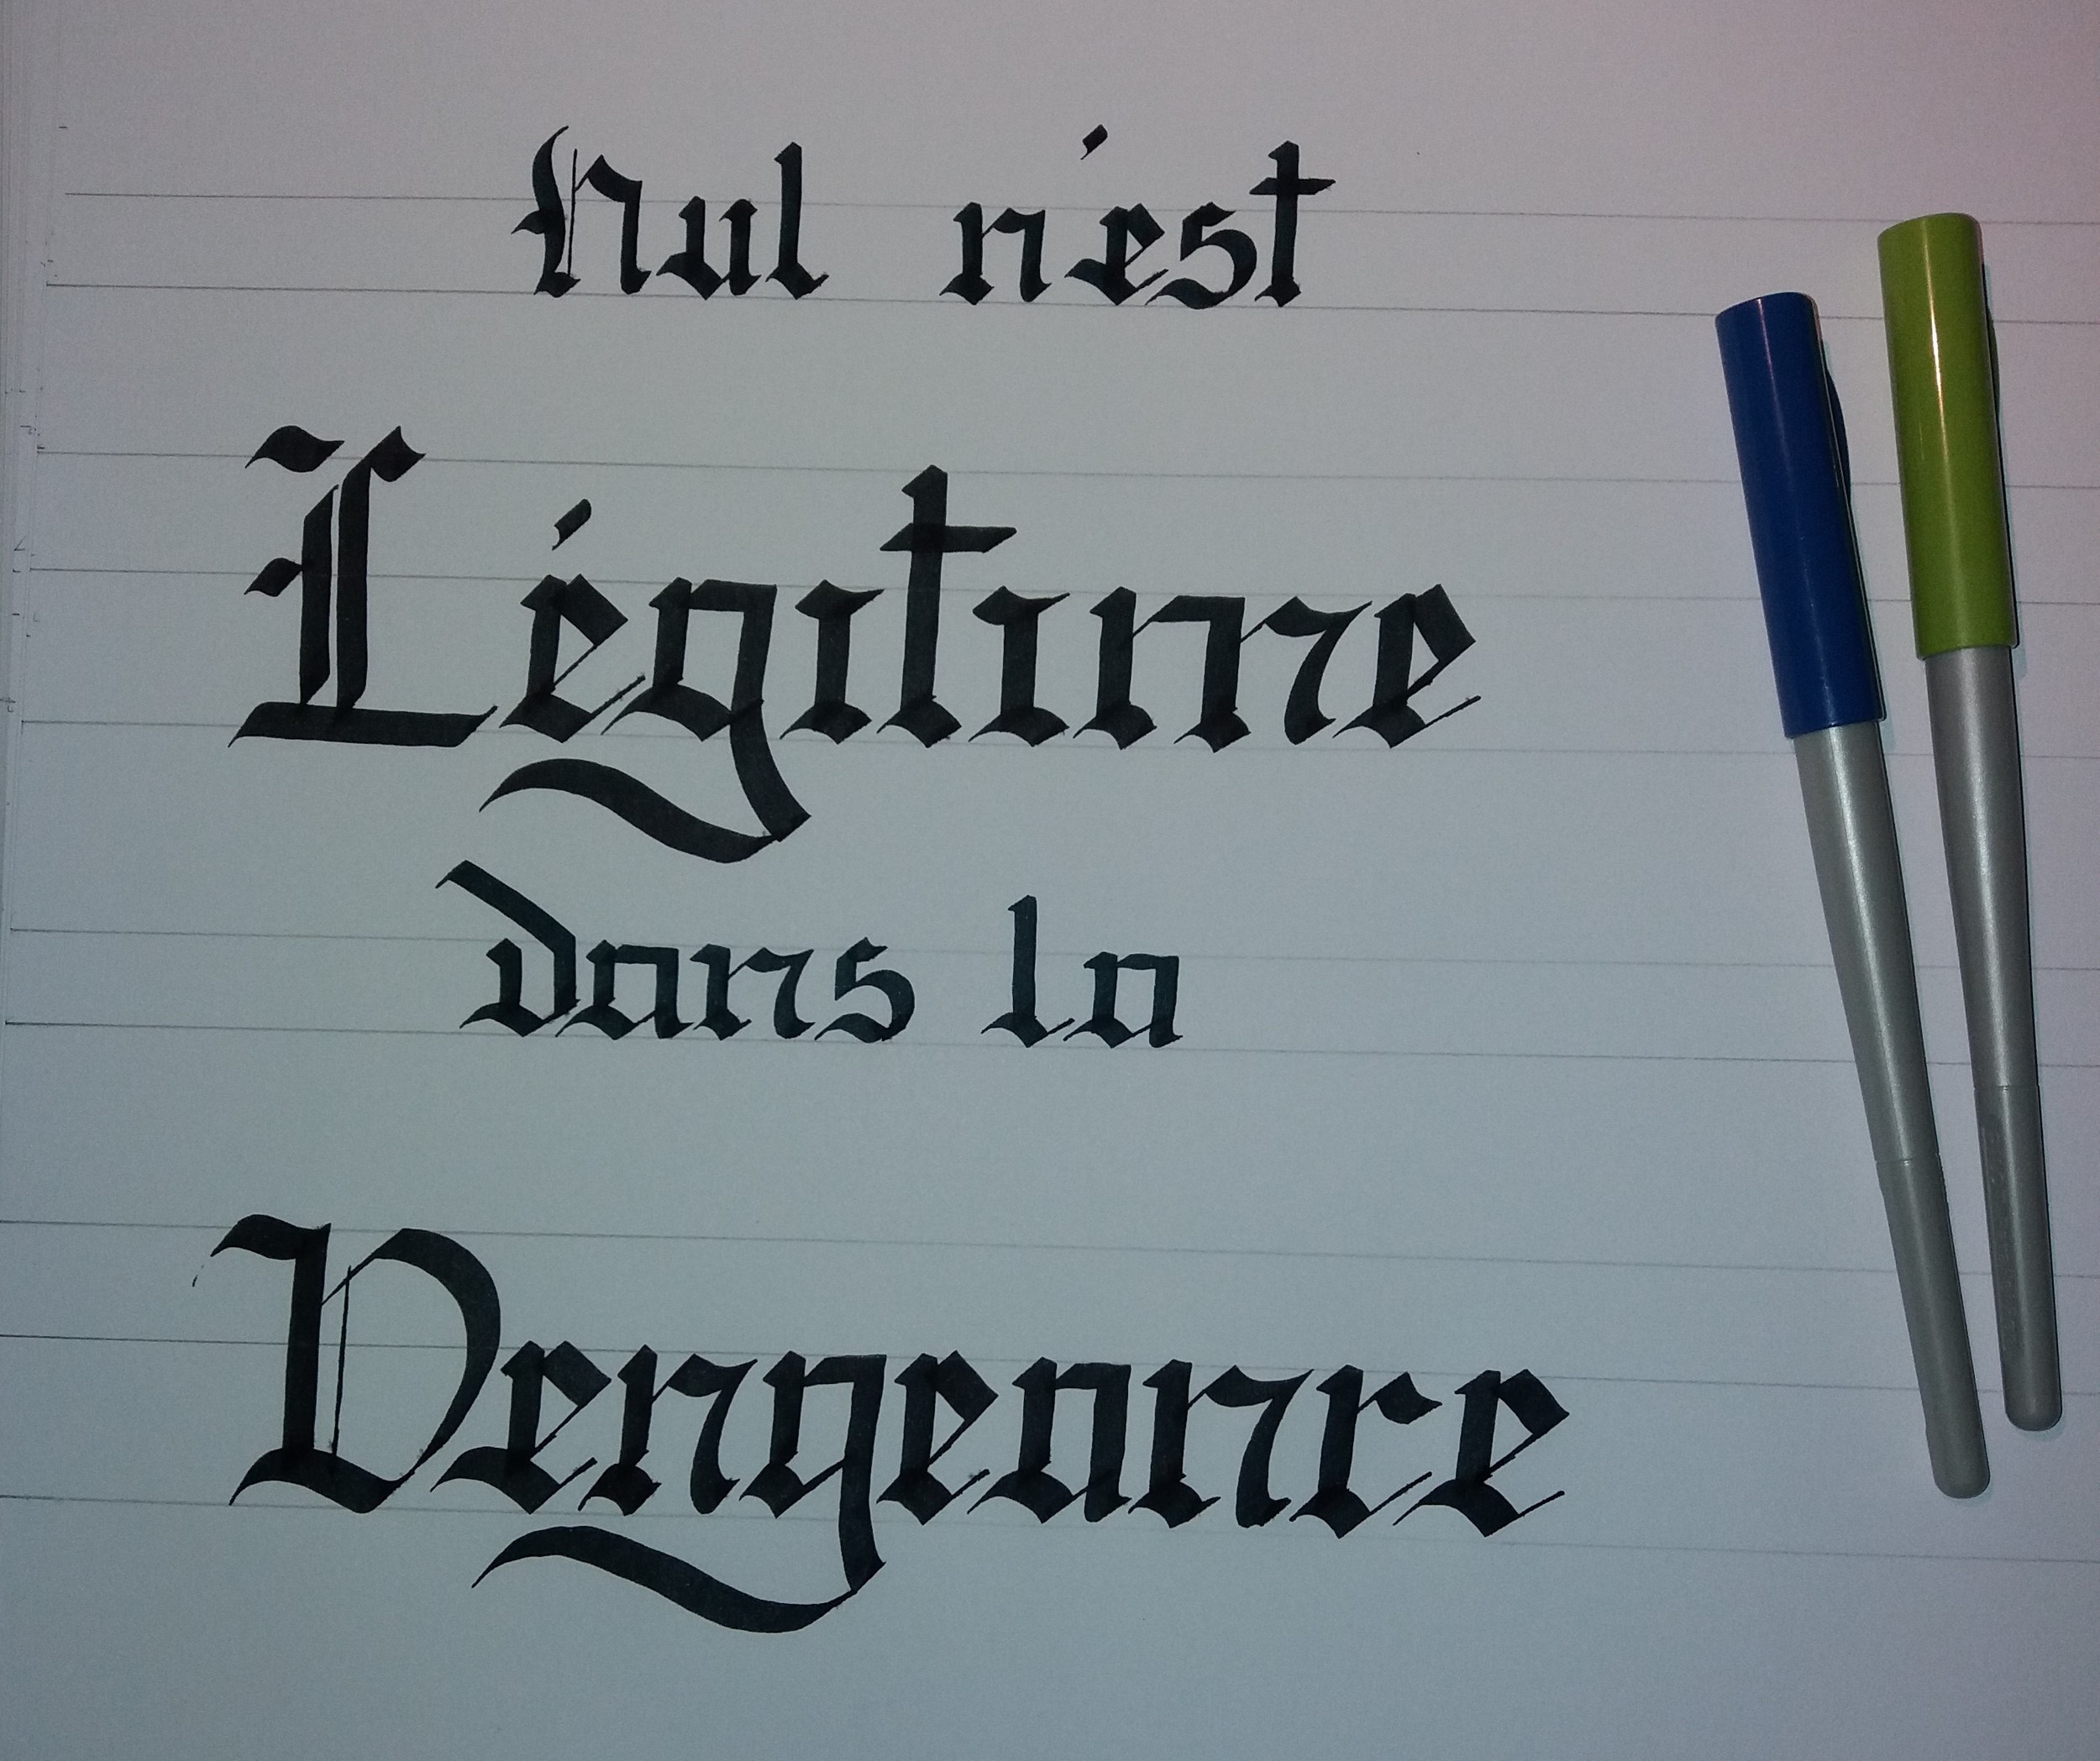 Nul n'est
Légitime
dans la
Vengeance